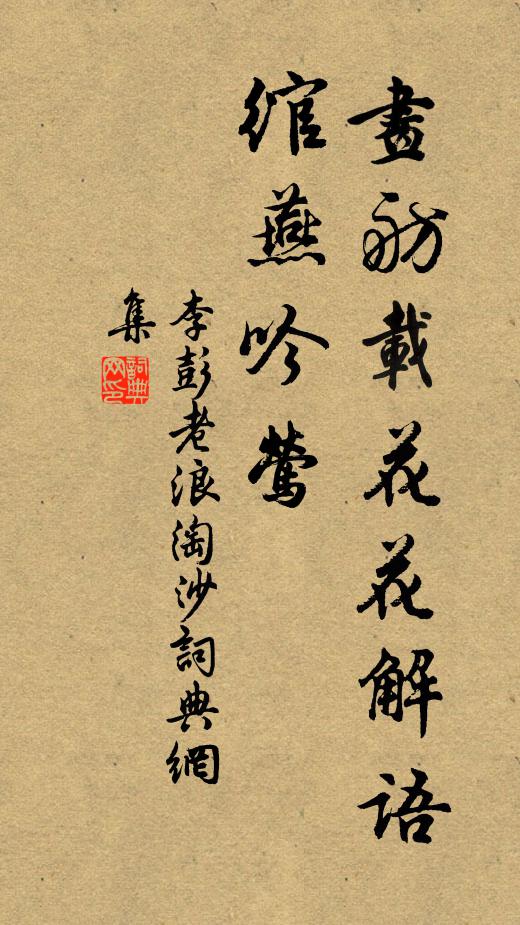 畫舫載花花解語
綰燕吟鶯
李彭老浪淘沙詞典網
集
詞典網印